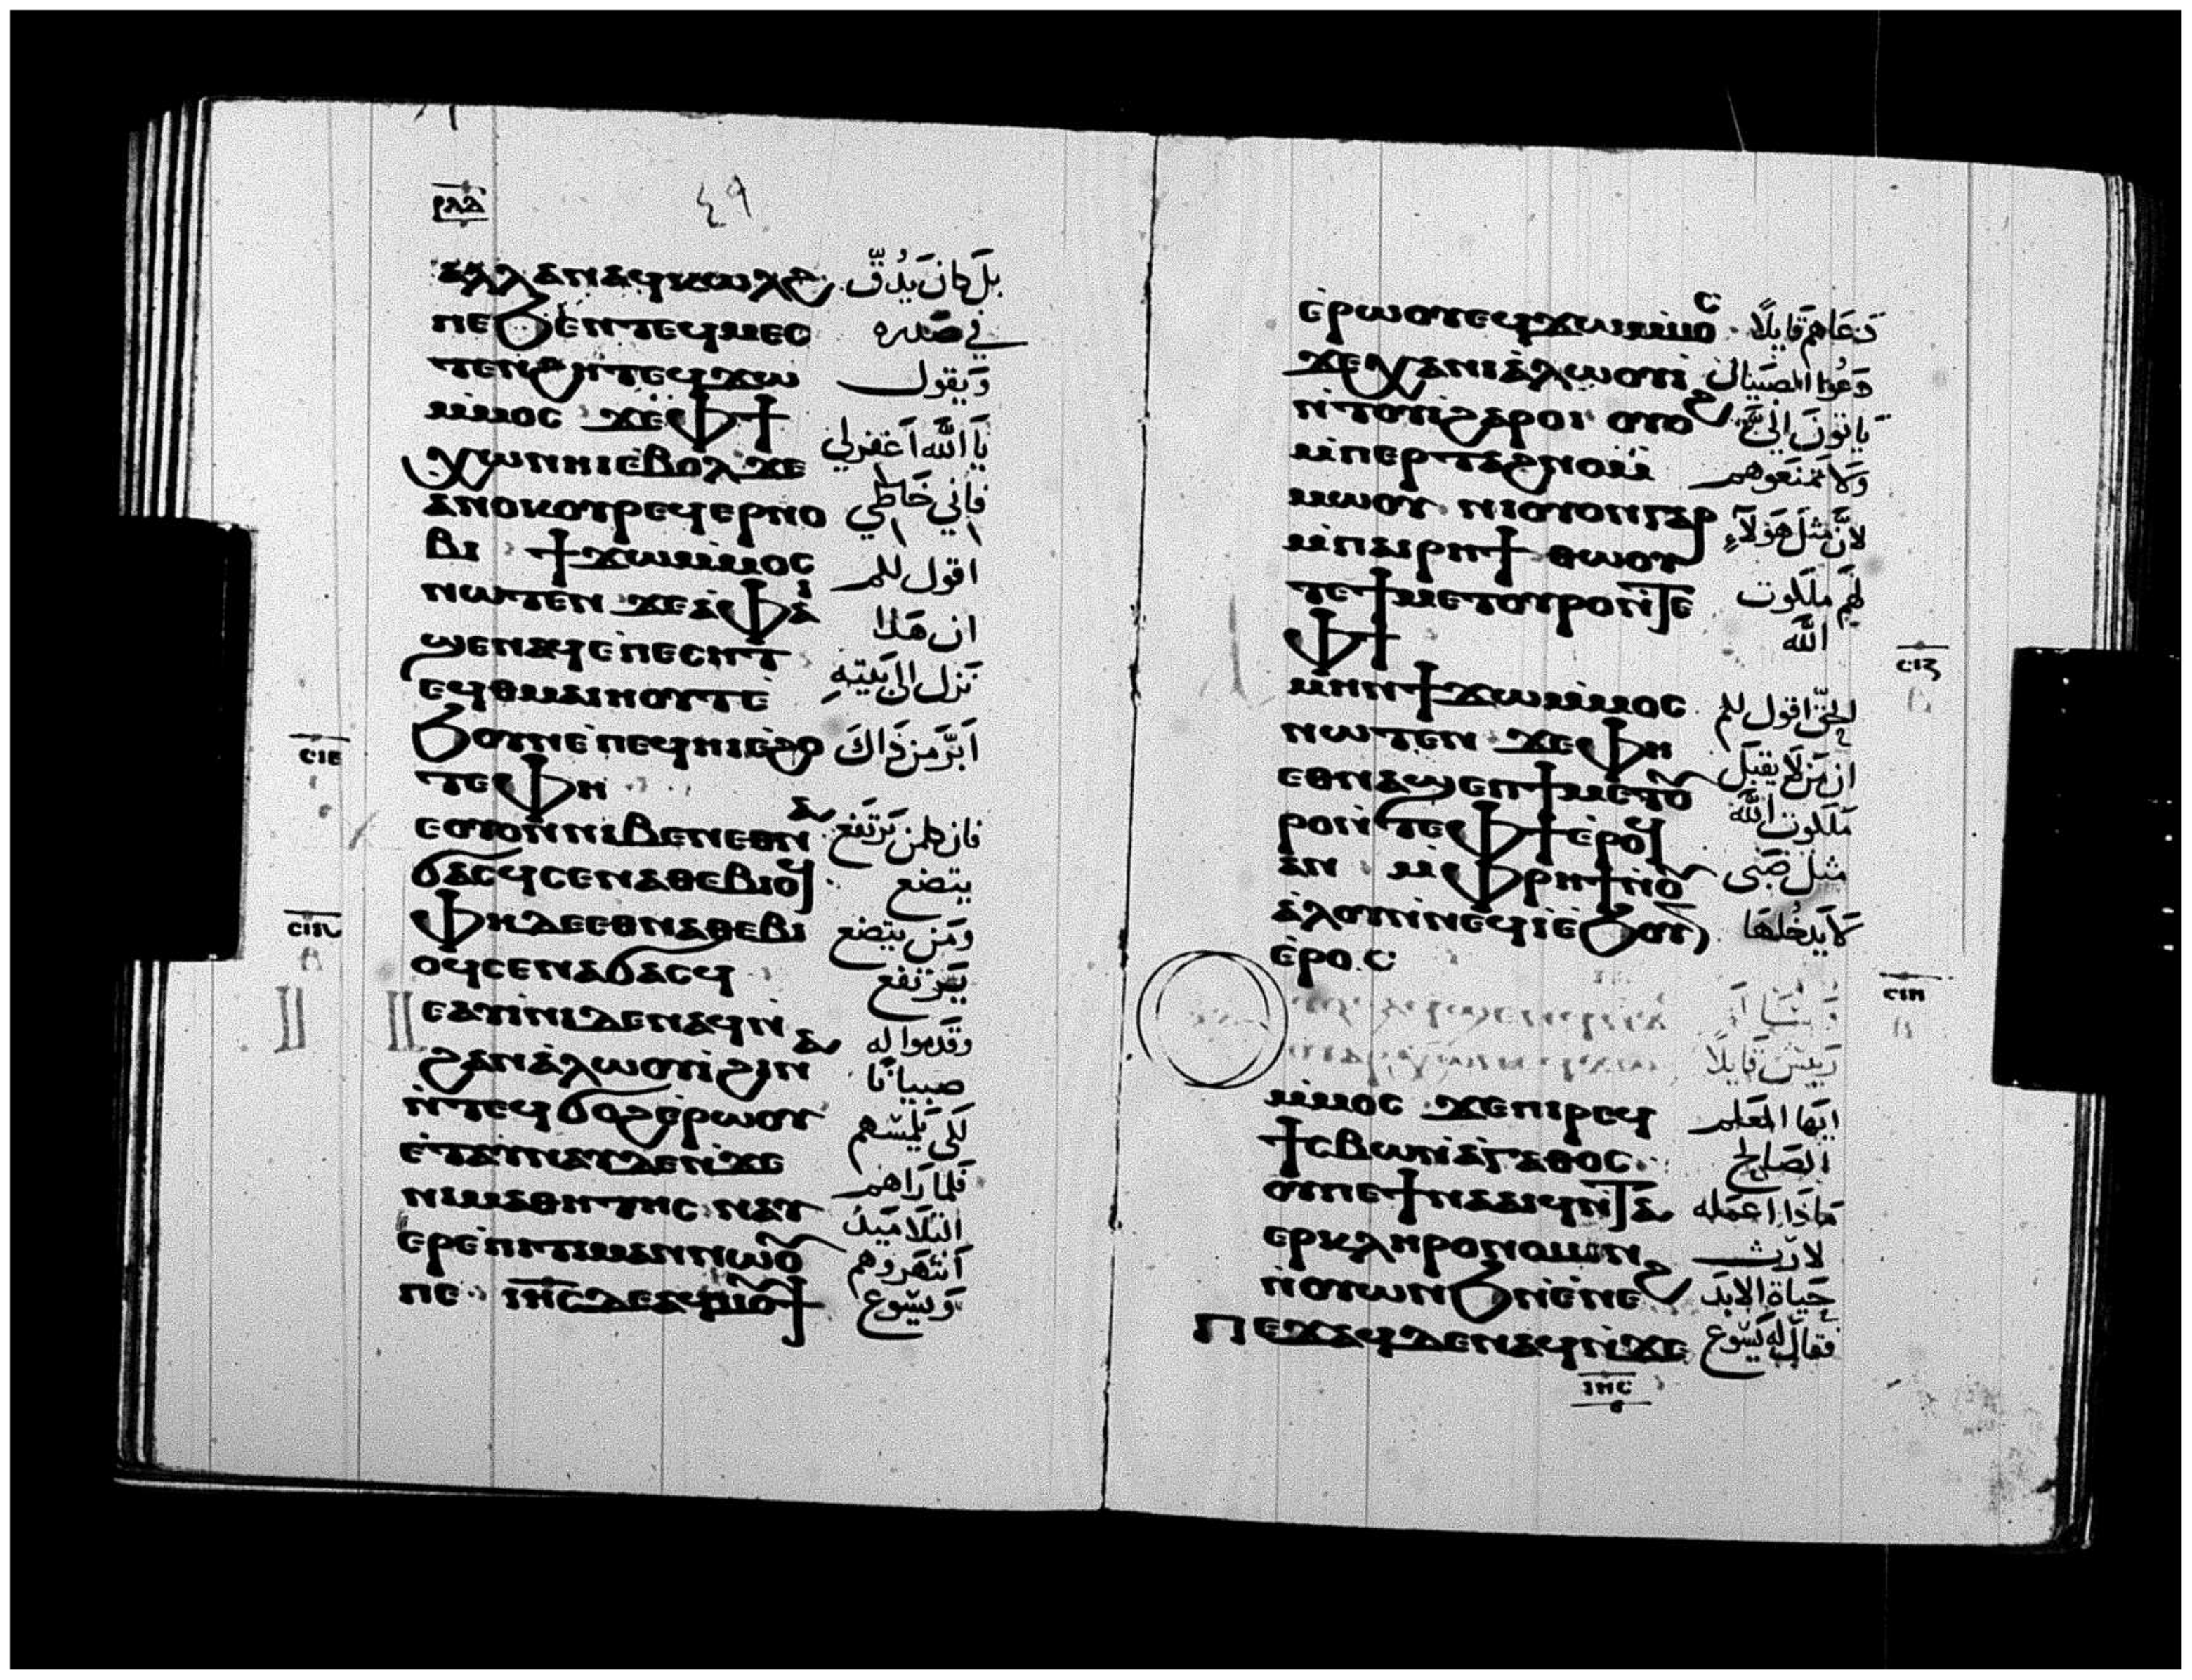 ⲣⲗⲇ
٤٩
ⲁⲗⲗⲁⲛⲁϥⲕⲱⲗϩ بَل كانَ يَدُقّ
ⲡⲉϧⲉⲛⲧⲉϥⲙⲉⲥ في صَدره
ⲧⲉⲛϩⲏⲧⲉϥϫⲱ وَيقول
ⲙⲙⲟⲥ ϫⲉⲫϯ يَا الله اَغفرلي
ⲭⲱⲛⲏⲓⲉⲃⲟⲗϫⲉ فاني خَاطي
ⲁⲛⲟⲕⲟⲩⲣⲉϥⲉⲣⲛⲟ
ⲃⲓ ϯϫⲱⲙⲙⲟⲥ اقول لكم
ⲛⲱⲧⲉⲛ ϫⲉⲁⲫⲁⲓ ان هَذا
ϣⲉⲛⲁϥⲉⲡⲉⲥⲏⲧ نَزل الى بَيته
ⲉϥⲑⲙⲁⲓⲏⲟⲩⲧⲉ
ϧⲟⲩⲛⲉⲡⲉϥⲏⲓⲉϩⲟ اَبرّ مَن ذَاكَ
ⲥⲓⲉ
ⲧⲉⲫⲏ
ⲉⲟⲩⲟⲛⲛⲓⲃⲉⲛⲉⲑⲛⲁ فان كلمن يَرتفع
ϭⲁⲥϥⲥⲉⲛⲁⲑⲉⲃⲓⲟϥ يتضع
ⲥⲓⲋ
ⲫⲏⲇⲉⲉⲑⲛⲁⲑⲉⲃⲓ ومَن يتضع
ⲟϥⲥⲉⲛⲁϭⲁⲥϥ يَرتفع
ⲉⲁⲩⲓⲛⲓⲇⲉⲛⲁϥⲛ وقَدموا له
ϩⲁⲛⲁⲗⲱⲟⲩⲓϩⲓⲛⲁ صبيانًا
ⲛⲧⲉϥϭⲟϩⲉⲣⲱⲟⲩ لكى يَلمسهم
ⲉⲧⲁⲩⲛⲁⲩⲇⲉⲛϫⲉ فَلما رَاهم
ⲛⲓⲙⲁⲑⲏⲧⲏⲥ ⲛⲁⲩ التلاميذ
ⲉⲣⲉⲡⲓⲧⲓⲙⲁⲛⲛⲱⲟⲩ اَنتهَروهم
ⲡⲉ ⲓⲏⲥⲇⲉⲁϥⲙⲟⲩϯ وَيسُوع
ⲉⲣⲱⲟⲩⲉϥϫⲱⲙⲙⲟⲥ دَعَاهم قَايلًا
ϫⲉⲭⲁⲛⲓⲁⲗⲱⲟⲩⲓ دَعُوا الصبيان
ⲛⲧⲟⲩⲓϩⲁⲣⲟⲓ ⲟⲩⲟϩ يَاتونَ الىّ
ⲙⲡⲉⲣⲧⲁϩⲛⲟⲙ وَلا تمنَعوهم
ⲙⲱⲟⲩ ⲛⲓⲟⲩⲟⲛⲅⲁⲣ لانّ مثل هَولآءِ
ⲙⲡⲁⲓⲣⲏϯ ⲑⲱⲟⲩ
ⲧⲉϯⲙⲉⲧⲟⲩⲣⲟⲛⲧⲉ لهُم ملكوت
ⲫϯ الله
ⲥⲓⲍ
ⲙⲏⲛϯϫⲱⲙⲙⲟⲥ الحقّ اقول لكم
ⲛⲱⲧⲉⲛ ϫⲉⲫⲏ ان مَن لا يقبَل
ⲉⲑⲛⲁϣⲉⲡϯⲙⲉⲧⲟⲩ ملكوت الله
ⲣⲟⲛⲧⲉⲫϯⲉⲣⲟϥ
ⲁⲛ ⲙⲫⲣⲏϯⲛⲟⲩ مثل صَبى
ⲁⲗⲟⲩⲛⲛⲉϥⲓⲉϧⲟⲩⲛ لا يَدخُلهَا
ⲉⲣⲟⲥ
ⲥⲓⲏ
رَييس قَايلًا
ⲙⲙⲟⲥ ϫⲉⲡⲓⲣⲉϥ ايّها المعَلم
ϯⲥⲃⲱⲛⲁⲅⲁⲑⲟⲥ الصَالح
ⲟⲩⲡⲉϯⲛⲁⲁⲓϥⲛⲧⲁ مَاذَا اعمَله
ⲉⲣⲕⲗⲏⲣⲟⲛⲟⲙⲓⲛ لارث
ⲛⲟⲩⲱⲛϧⲛⲉⲛⲉϩ حَياة الابَد
ⲡⲉϫⲁϥⲇⲉⲛⲁϥⲛϫⲉ فقالَ له يَسُوع
ⲓⲏⲥ